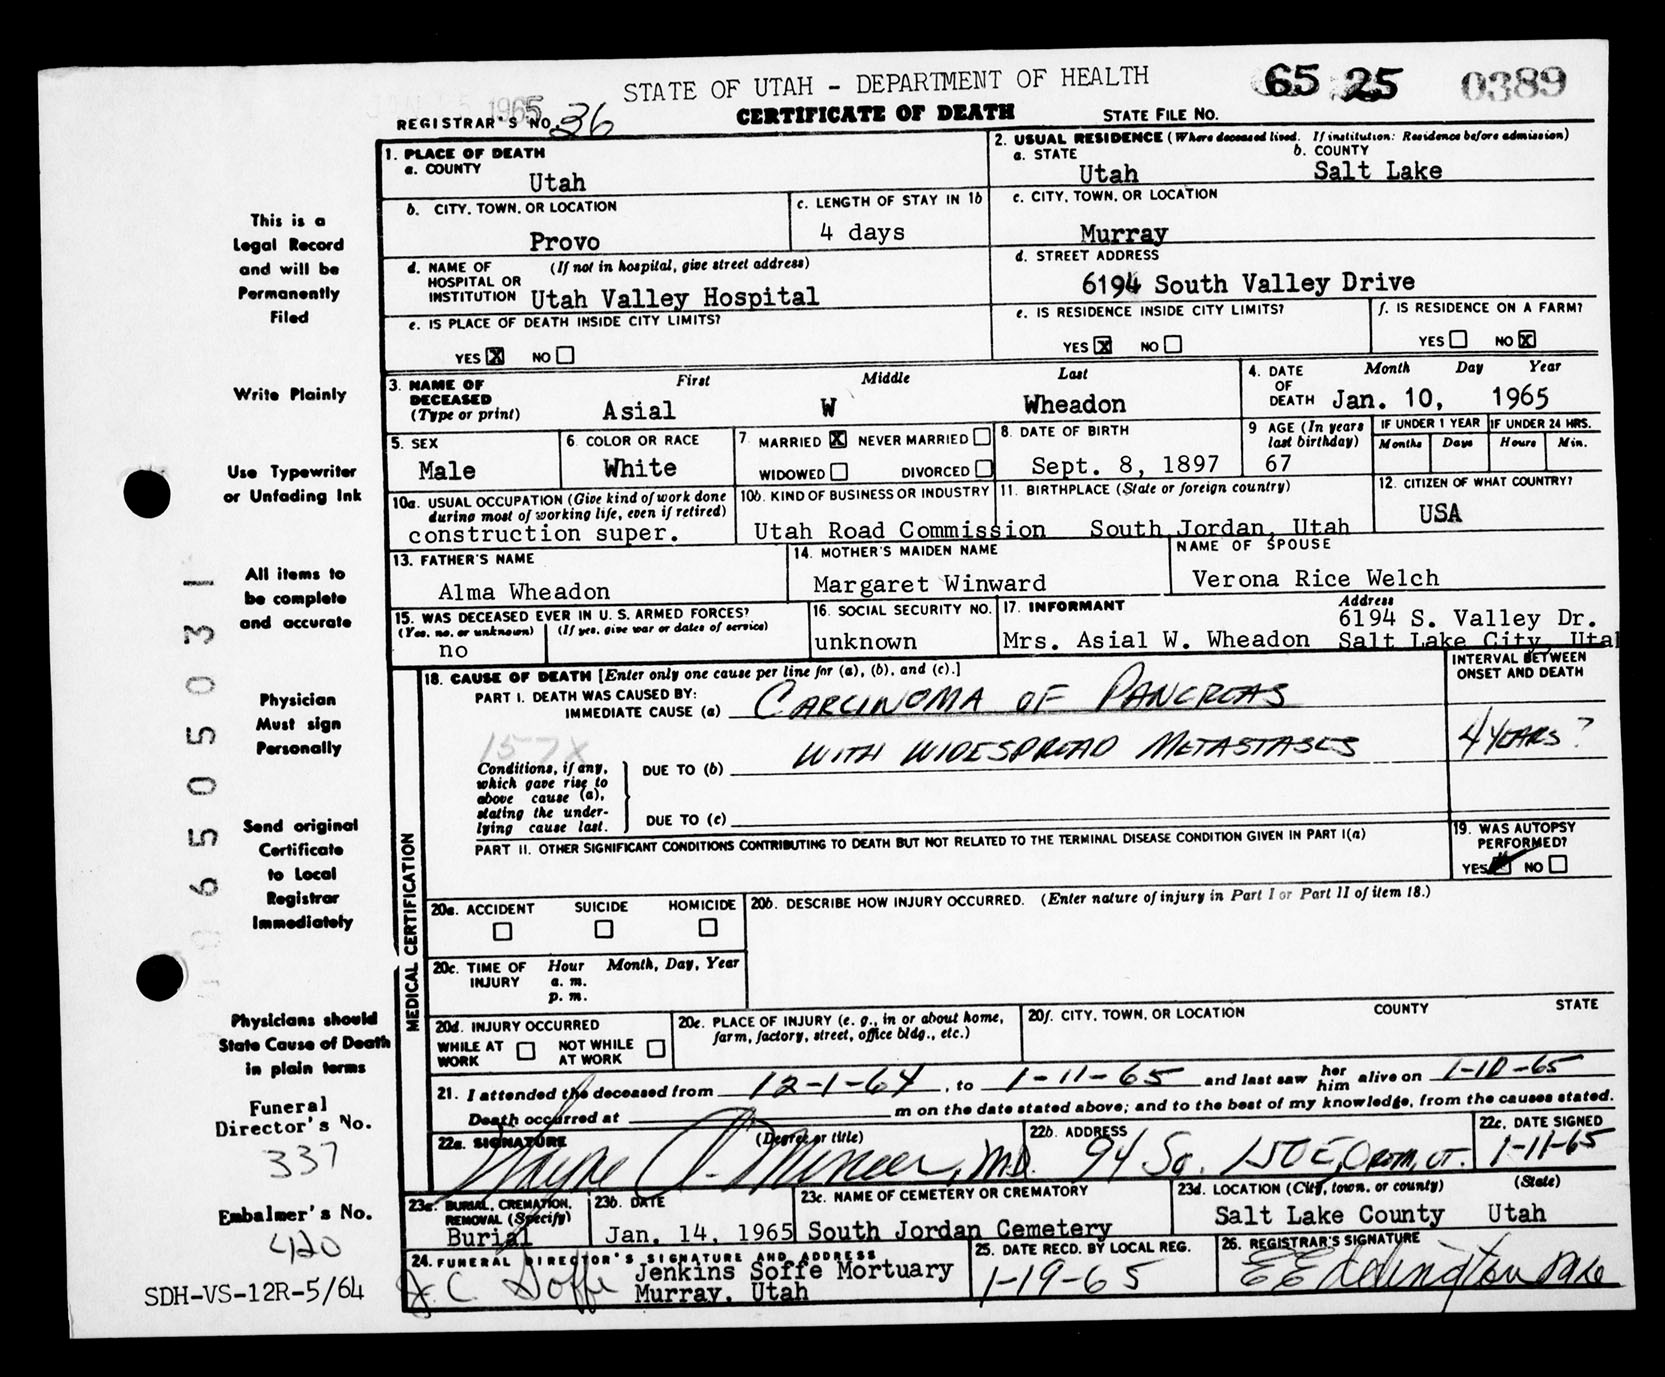 STATE OF UTAH - DEPARTMENT OF HEALTH
65 25 0389
1965
REGISTRAR'S NO. 36
CERTIFICATE OF DEATH
STATE FILE NO.
1. PLACE OF DEATH
a. COUNTY
Utah
2. USUAL RESIDENCE (Where deceased lived. If institution: Residence before admission)
a. STATE
Utah
b. COUNTY
Salt Lake
b. CITY, TOWN, OR LOCATION
Provo
c. LENGTH OF STAY IN 1b
4 days
c. CITY, TOWN, OR LOCATION
Murray
d. NAME OF (If not in hospital, give street address)
HOSPITAL OR
INSTITUTION Utah Valley Hospital
d. STREET ADDRESS
6194 South Valley Drive
e. IS PLACE OF DEATH INSIDE CITY LIMITS?
YES X NO
e. IS RESIDENCE INSIDE CITY LIMITS?
YES X NO
f. IS RESIDENCE ON A FARM?
YES NO X
3. NAME OF
DECEASED
(Type or print)
First Middle Last
Asial W Wheadon
4. DATE
OF
DEATH
Month Day Year
Jan. 10, 1965
5. SEX
Male
6. COLOR OR RACE
White
7. MARRIED X NEVER MARRIED
WIDOWED DIVORCED
8. DATE OF BIRTH
Sept. 8, 1897
9 AGE (In years
last birthday)
67
IF UNDER 1 YEAR
Months Days
IF UNDER 24 HRS.
Hours Min.
10a. USUAL OCCUPATION (Give kind of work done
during most of working life, even if retired)
construction super.
10b. KIND OF BUSINESS OR INDUSTRY
Utah Road Commission
11. BIRTHPLACE (State or foreign country)
South Jordan, Utah
12. CITIZEN OF WHAT COUNTRY?
USA
13. FATHER'S NAME
Alma Wheadon
14. MOTHER'S MAIDEN NAME
Margaret Winward
NAME OF SPOUSE
Verona Rice Welch
15. WAS DECEASED EVER IN U. S. ARMED FORCES?
(Yes, no, or unknown) (If yes, give war or dates of service)
no
16. SOCIAL SECURITY NO.
unknown
17. INFORMANT
Mrs. Asial W. Wheadon
Address
6194 S. Valley Dr.
Salt Lake City, Utah
MEDICAL CERTIFICATION
18. CAUSE OF DEATH [Enter only one cause per line for (a), (b), and (c).]
INTERVAL BETWEEN
ONSET AND DEATH
PART I. DEATH WAS CAUSED BY:
IMMEDIATE CAUSE (a) CARCINOMA OF PANCREAS
157X
Conditions, if any,
which gave rise to
above cause (a),
stating the under-
lying cause last.
DUE TO (b) WITH WIDESPREAD METASTASES
4 YEARS ?
DUE TO (c)
PART II. OTHER SIGNIFICANT CONDITIONS CONTRIBUTING TO DEATH BUT NOT RELATED TO THE TERMINAL DISEASE CONDITION GIVEN IN PART I(a)
19. WAS AUTOPSY
PERFORMED?
YES NO
20a. ACCIDENT SUICIDE HOMICIDE
20b. DESCRIBE HOW INJURY OCCURRED. (Enter nature of injury in Part I or Part II of item 18.)
20c. TIME OF
INJURY
Hour Month, Day, Year
a. m.
p. m.
20d. INJURY OCCURRED
WHILE AT
WORK
NOT WHILE
AT WORK
20e. PLACE OF INJURY (e. g., in or about home,
farm, factory, street, office bldg., etc.)
20f. CITY, TOWN, OR LOCATION COUNTY STATE
21. I attended the deceased from 12-1-64, to 1-11-65 and last saw her him alive on 1-10-65
Death occurred at m on the date stated above; and to the best of my knowledge, from the causes stated.
22a. SIGNATURE (Degree or title)
Wayne M.D.
22b. ADDRESS
94 So. 150 E, Orem, UT.
22c. DATE SIGNED
1-11-65
23a. BURIAL, CREMATION,
REMOVAL (Specify)
Burial
23b. DATE
Jan. 14, 1965
23c. NAME OF CEMETERY OR CREMATORY
South Jordan Cemetery
23d. LOCATION (City, town, or county) (State)
Salt Lake County Utah
24. FUNERAL DIRECTOR'S SIGNATURE AND ADDRESS
J. C. Soffe
Jenkins Soffe Mortuary
Murray, Utah
25. DATE RECD. BY LOCAL REG.
1-19-65
26. REGISTRAR'S SIGNATURE
This is a
Legal Record
and will be
Permanently
Filed
Write Plainly
Use Typewriter
or Unfading Ink
All items to
be complete
and accurate
Physician
Must sign
Personally
Send original
Certificate
to Local
Registrar
Immediately
Physicians should
State Cause of Death
in plain terms
Funeral
Director's No.
337
Embalmer's No.
420
SDH-VS-12R-5/64